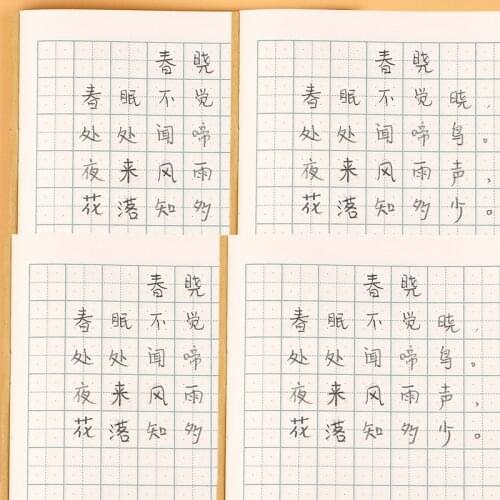 春晓
春眠不觉
处处闻啼
夜来风雨
花落知多
春晓
春眠不觉晓,
处处闻啼鸟。
夜来风雨声,
花落知多少。
春晓
春眠不觉
处处闻啼
夜来风雨
花落知多
春晓
春眠不觉晓,
处处闻啼鸟。
夜来风雨声,
花落知多少。